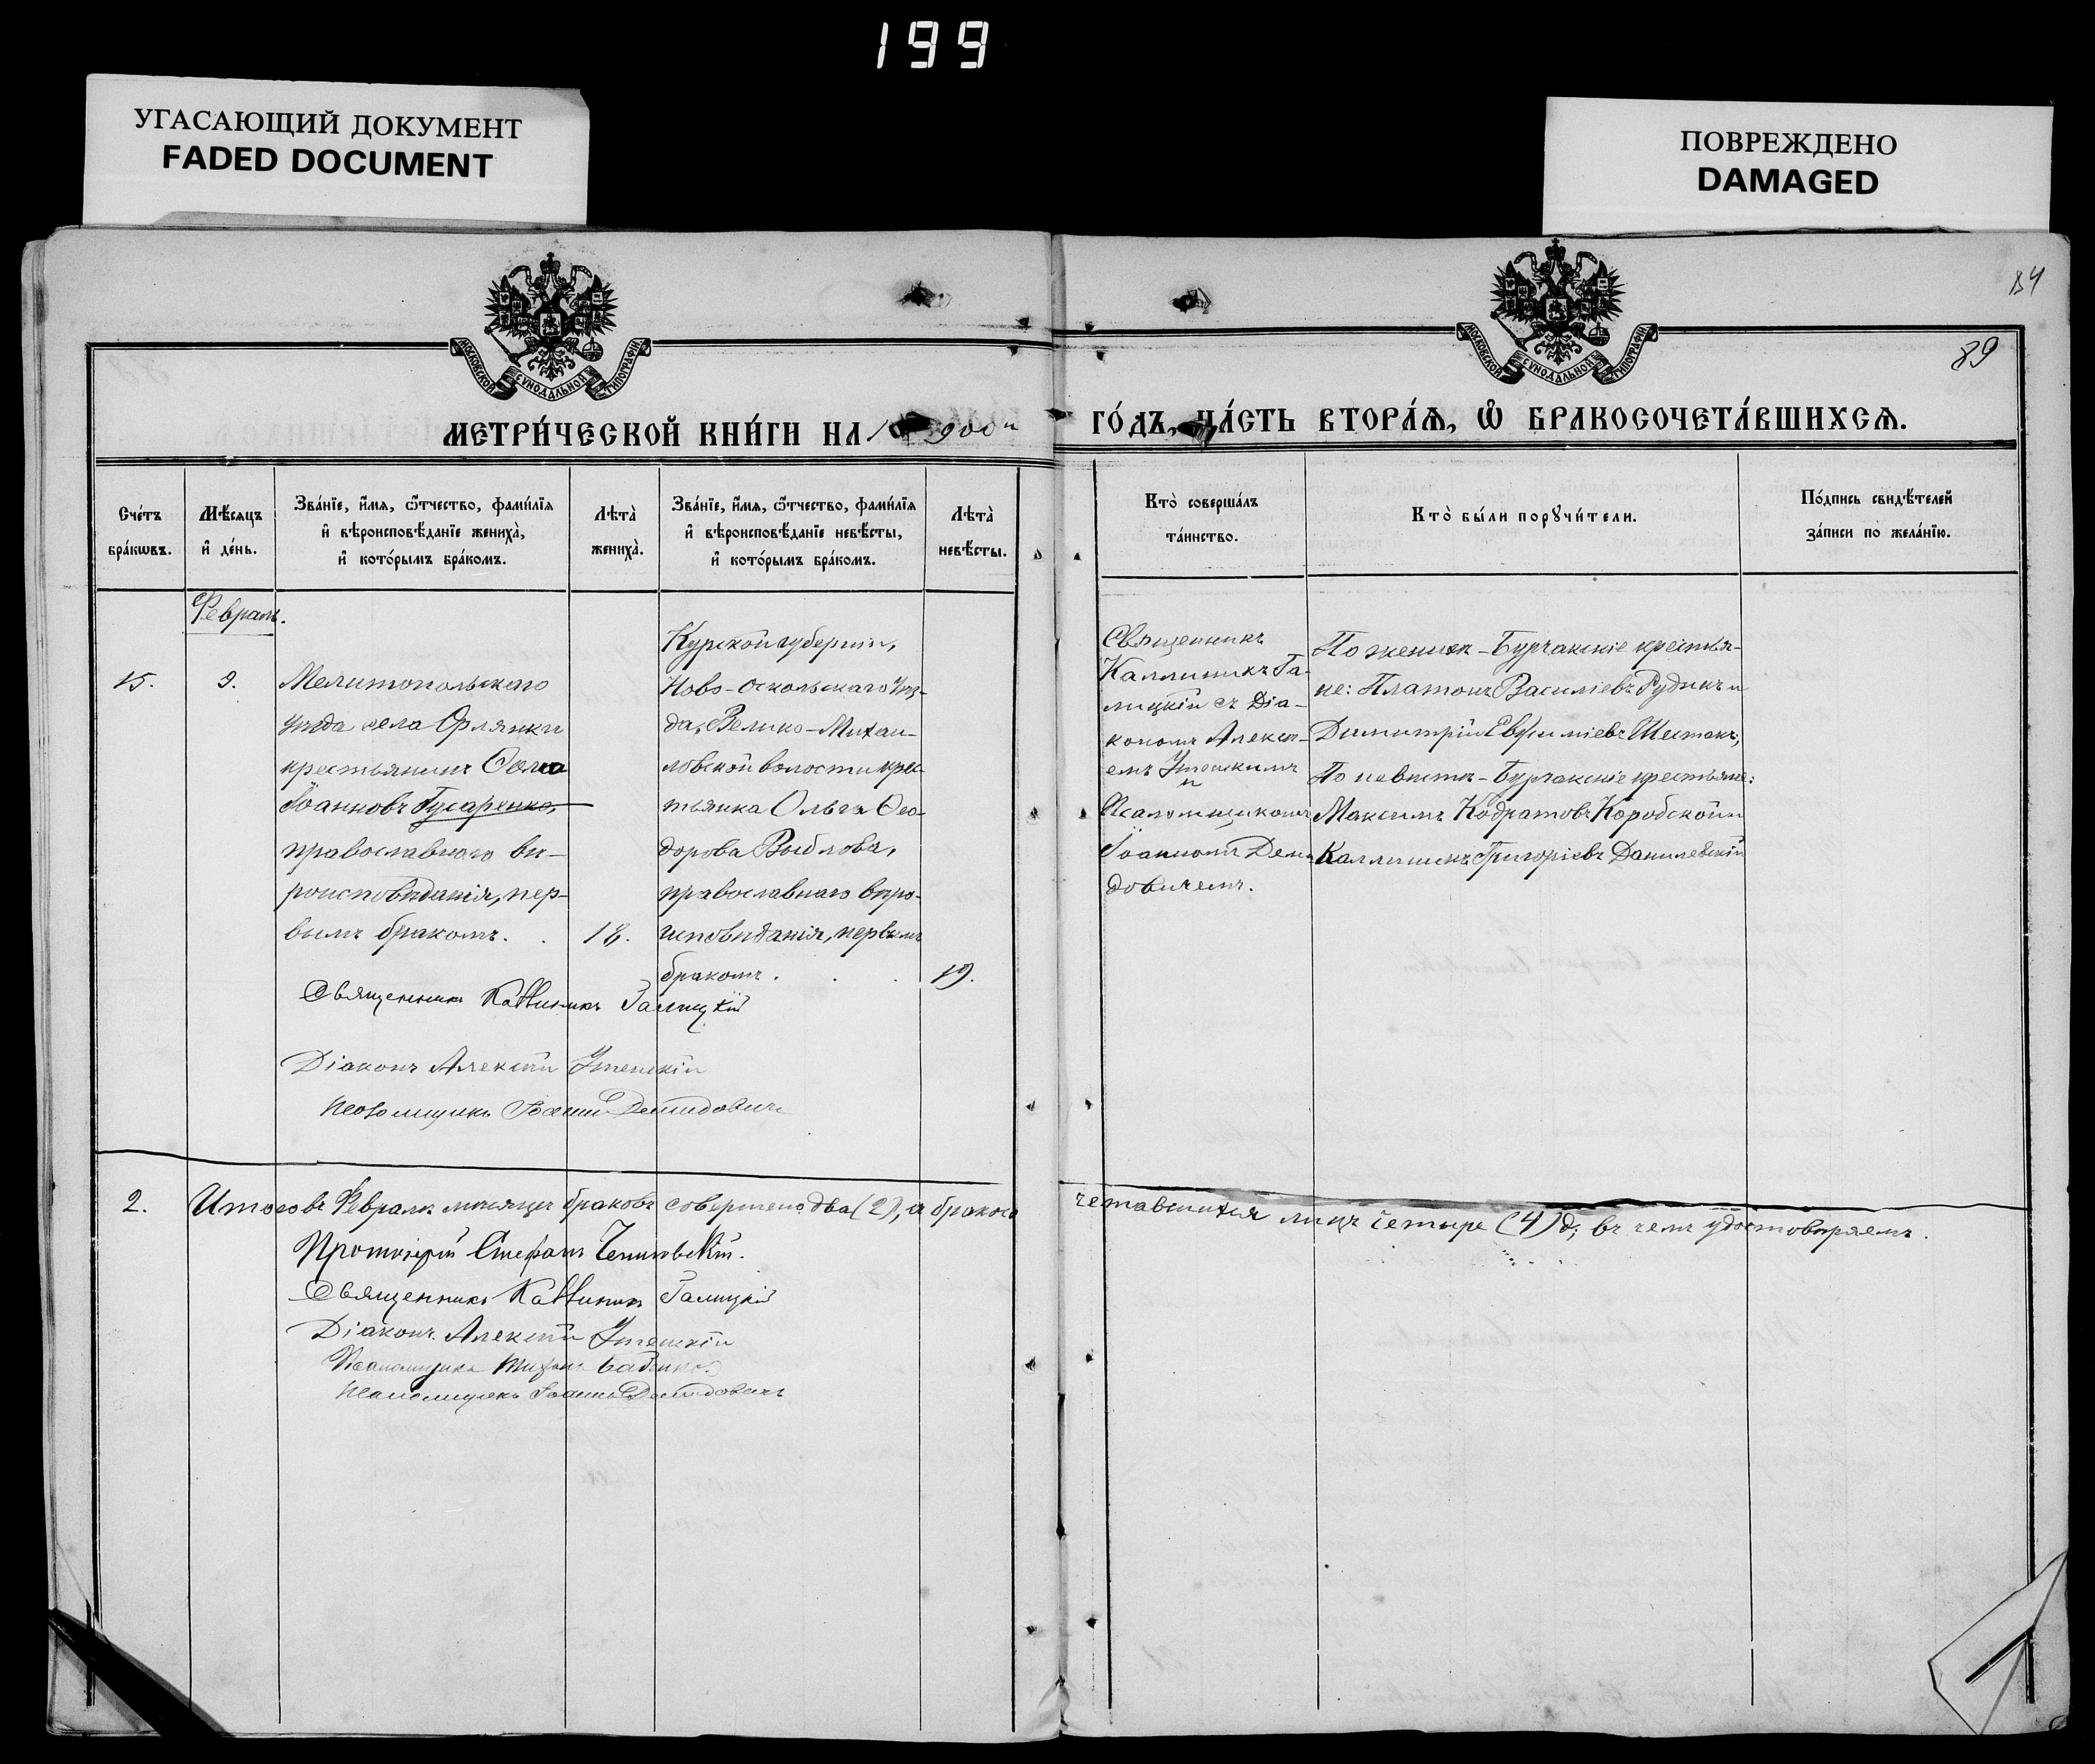 199
УГАСАЮЩИЙ ДОКУМЕНТ
FADED DOCUMENT
ПОВРЕЖДЕНО
DAMAGED
84
89
МОСКОВСКОЙ СѴНОДАЛЬНОЙ ТИПОГРАФІИ
МОСКОВСКОЙ СѴНОДАЛЬНОЙ ТИПОГРАФІИ
МЕТРИ́ЧЕСКОЙ КНИ́ГИ НА 1900й
ГО́ДЪ, ЧА́СТЬ ВТОРА́Ѧ, Ѽ БРАКОСОЧЕТА́ВШИХСѦ.
Сче́тъ бра́кѡвъ.
Мѣ́сяцъ и҆ де́нь.
Зва́нїе, и҆́мѧ, ѻ҆́тчество, фами́лїѧ и҆ вѣроисповѣ́данїе жениха̀, и҆ кото́рымъ бра́комъ.
Лѣта̀ жениха̀.
Зва́нїе, и҆́мѧ, ѻ҆́тчество, фами́лїѧ и҆ вѣроисповѣ́данїе невѣ́сты, и҆ кото́рымъ бра́комъ.
Лѣта̀ невѣ́сты.
Кто̀ соверша́лъ та́инство.
Кто̀ бы́ли порꙋчи́тели.
По́дпись свидѣ́телей за́писи по жела́нїю.
Февраль.
15.
9.
Мелитопольскаго
уѣзда села Орлянки
крестьянинъ Ѳома
Іоанновъ Гусаренко,
православнаго вѣ-
роисповѣданія, пер-
вымъ бракомъ.
18.
Курской губерніи,
Ново-Оскольскаго уѣз-
да, Велико-Михаи-
ловской волости крес-
тьянка Ольга Ѳео-
дорова Выблова,
православнаго вѣро-
исповѣданія, первымъ
бракомъ.
19.
Священникъ
Каллиникъ Га-
лицкій съ Діа-
кономъ Алексі-
емъ Утешскимъ
и
Псаломщикомъ
Іоанномъ Деми-
довичемъ.
По женихѣ - Бурчакскіе крестья-
не: Платонъ Василіевъ Рудикъ и
Димитрій Евѳиміевъ Шестакъ;
По невѣстѣ - Бурчакскіе крестьяне:
Максимъ Кодратовъ Коробской и
Каллиникъ Григоріевъ Данилевскій
Священникъ Каллиникъ Галицкій
Діаконъ Алексій Утешскій
Псаломщикъ Іоаннъ Демидовичъ
2.
Итого въ Февралѣ мѣсяцѣ браковъ совершено два (2), а бракосо
четавшихся лицъ четыре (4) д; въ чемъ удостовѣряемъ.
Протоіерей Стефанъ
Священникъ Каллиникъ Галицкій
Діаконъ Алексій Утешскій
Псаломщикъ
Псаломщикъ Іоаннъ Демидовичъ